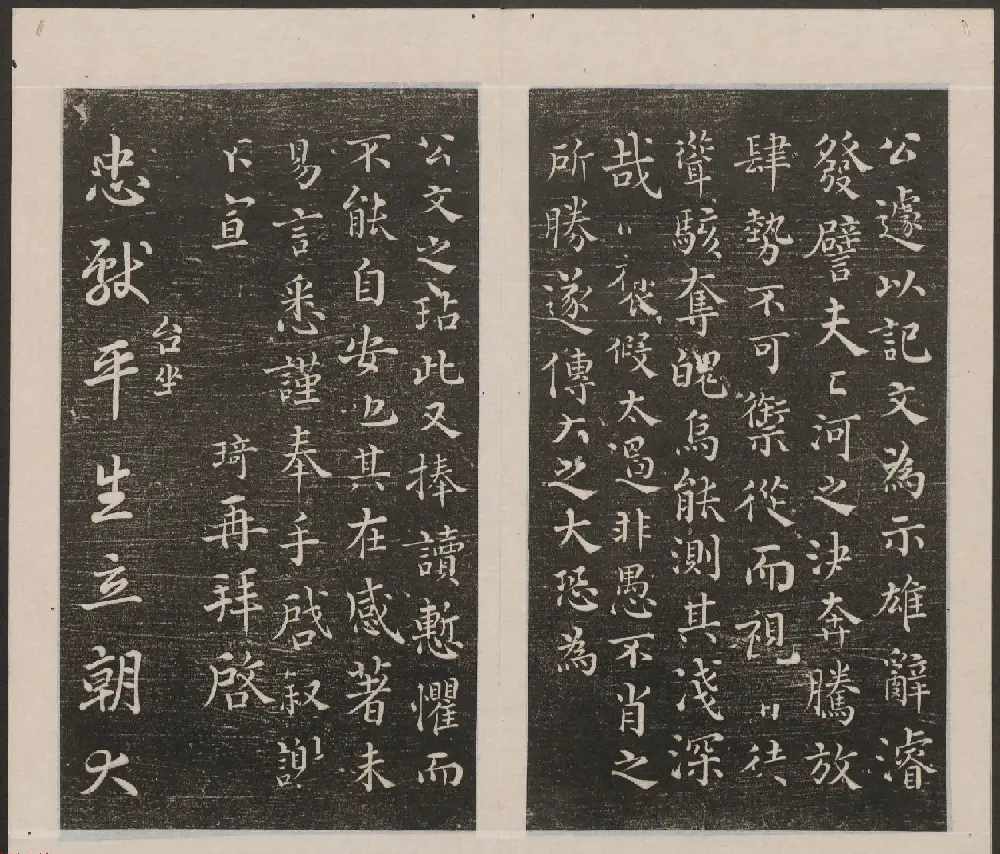 公遽以記文為示雄辭濬
發譬夫河之決奔騰放
肆勢不可禦從而視
聳駭奪魄烏能測其淺深
哉褒假太過非愚不肖之
所勝遂傳之大恐為
公文之玷此又捧讀慙懼而
不能自安也其在感著未
易言悉謹奉手啓叙謝
不宣 琦再拜啓
台坐
忠獻平生立朝大